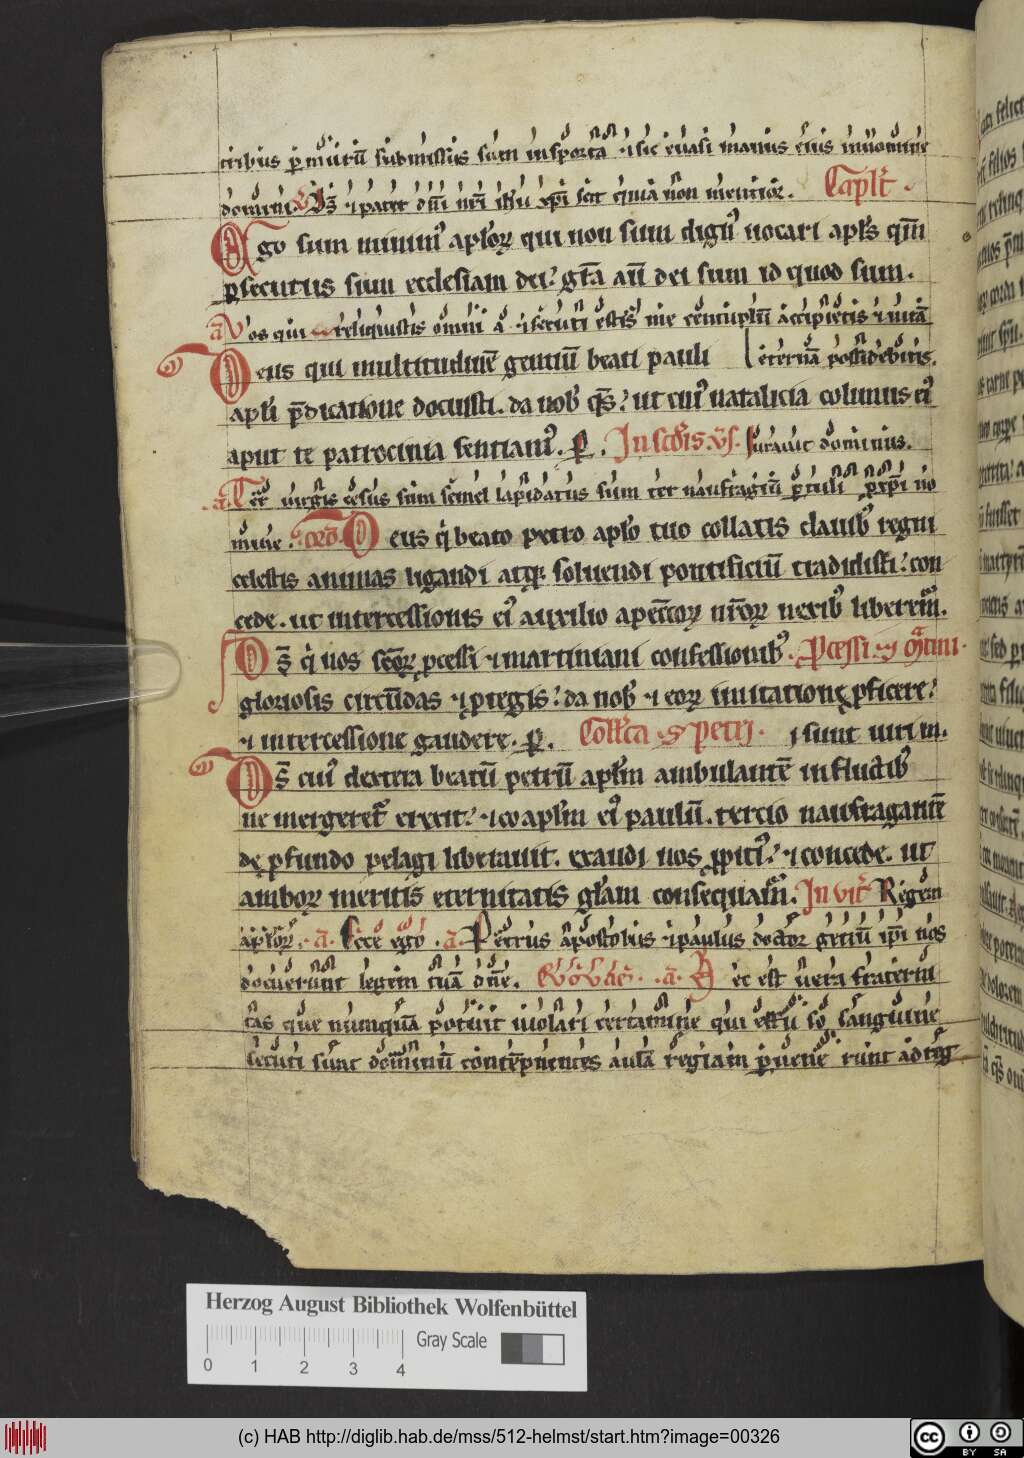 tribus ꝑ murū submissus sum in sporta ⁊ sic euasi manus eius in nomine
domini. ⁊ pater dn̄i nr̄i ih̄u xp̄i scit quia non mentior. Capl̄m.
Ego sum minim᷒ apl̄oꝝ qui non sum dign᷒ uocari apl̄s qm̄
ꝑsecutus sum ecclesiam dei. gr̄a aū dei sum id quod sum.
a̅ Vos qui reliquistis omnia ⁊ secuti estis me centuplū accipietis ⁊ uitā
Deus qui multitudinē gentiū beati pauli eternā possidebitis.
apl̄i p̄dicatione docuisti. da nob᷒ qs̄. ut cui᷒ natalicia colimus ei᷒
aput te patrocinia sentiam᷒. ꝑ. In scd̄is. v̄s. Iurauit dominus.
a̅. Ter uirgis cesus sum semel lapidatus sum ter naufragiū ꝑtuli ꝓ xp̄i no
mine. Deus q̇ beato petro apl̄o tuo collatis clauib᷒ regni
celestis animas ligandi atqꝫ soluendi pontificiū tradidisti. con
cede. ut intercessionis ei᷒ auxilio a peccatoꝝ nr̄oꝝ nexib᷒ liberem᷒.
Ds̄ q̇ nos sc̄oꝝ ꝓcessi ⁊ martiniani confessionib᷒. Ꝓcessi ⁊ Martini.
gloriosis circūdas ⁊ ꝓtegis. da nob᷒ ⁊ eoꝝ imitatione ꝓficere.
⁊ intercessione gaudere. ꝑ. Coll̄ca petri. i sunt uiri m.
Ds̄ cui᷒ dextera beatū petrū apl̄m ambulantē in fluctib᷒
ne mergeret᷒ erexit. ⁊ coapl̄m ei᷒ paulū. tercio naufragantē
de ꝓfundo pelagi liberauit. exaudi nos ꝓpiti᷒. ⁊ concede. ut
amboꝝ meritis eternitatis gl̄am consequam᷒. In vit̄ Regem
apl̄oꝝ. a̅. Ecce ego. a̅. Petrus apostolus ⁊ paulus doctor gentiū ip̄i nos
docuerunt legem tuā dn̄e. Evovae. a̅. Hec est uera fraterni
tas que nunquā potuit uiolari certamine qui effuso sanguine
secuti sunt dominū contēpnentes aulā regiam ꝑuenerunt ad reg
Herzog August Bibliothek Wolfenbüttel
Gray Scale
0 1 2 3 4
(c) HAB http://diglib.hab.de/mss/512-helmst/start.htm?image=00326
cc BY SA